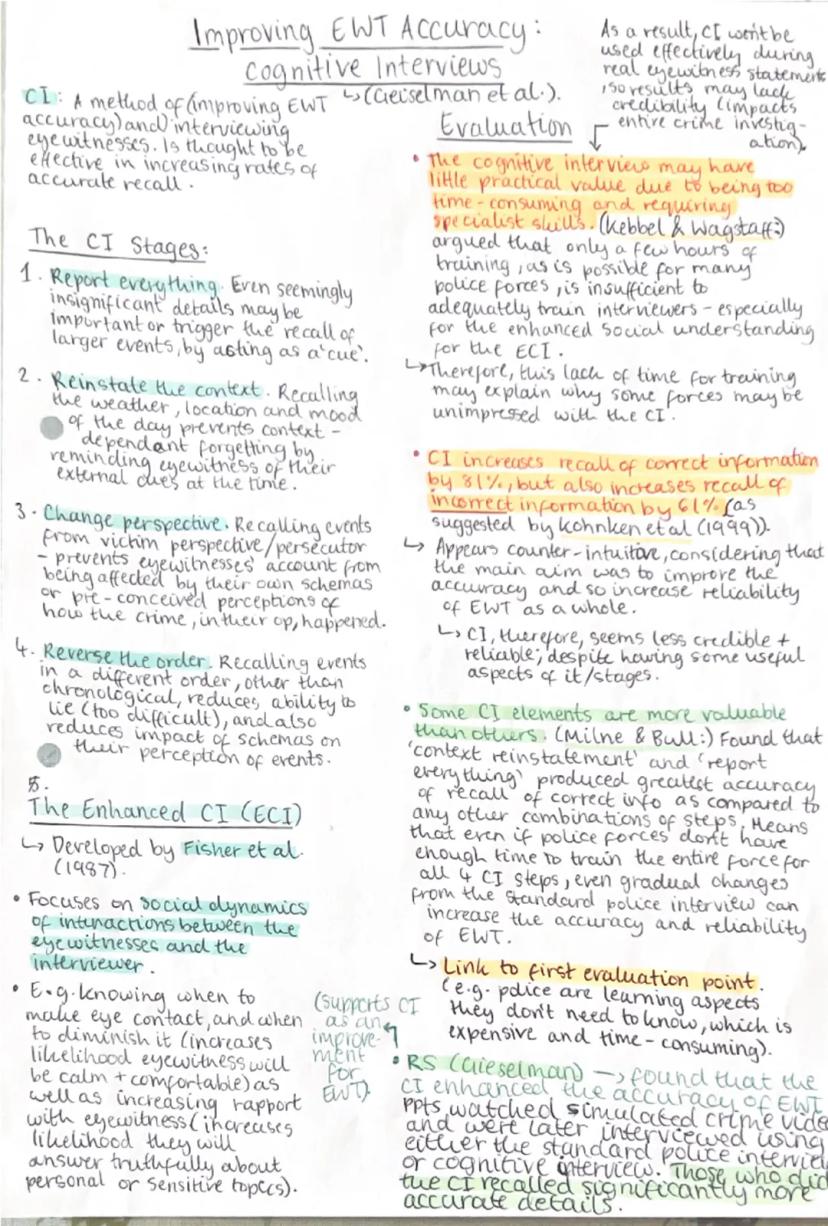 Improving EWT Accuracy:
Cognitive Interviews
↳ (Geiselman et al.).
CI: A method of (improving EWT
accuracy) and interviewing
eyewitnesses. Is thought to be
effective in increasing rates of
accurate recall.
The CI Stages:
1. Report everything. Even seemingly
insignificant details may be
important or trigger the recall of
larger events, by acting as a 'cue'.
2. Reinstate the context. Recalling
the weather, location and mood
of the day prevents context-
dependant forgetting by
reminding eyewitness of their
external cues at the time.
3. Change perspective. Recalling events
from victim perspective/persecutor
- prevents eyewitnesses' account from
being affected by their own schemas
or pre-conceived perceptions of
how the crime, in their op, happened.
4. Reverse the order. Recalling events
in a different order, other than
chronological, reduces ability to
lie (too difficult), and also
reduces impact of schemas on
their perception of events.
5.
The Enhanced CI (ECI)
↳ Developed by Fisher et al.
(1987).
• Focuses on social dynamics
of interactions between the
eyewitnesses and the
interviewer.
• E.g. knowing when to
make eye contact, and when
to diminish it (increases
likelihood eyewitness will
be calm + comfortable) as
well as increasing rapport
with eyewitness (increases
likelihood they will
answer truthfully about
personal or sensitive topics).
As a result, CI won't be
used effectively during
real eyewitness statements
, so results may lack
credibility (impacts
entire crime investig-
ation).
Evaluation
• The cognitive interview may have
little practical value due to being too
time-consuming and requiring
specialist skills. (Kebbel & Wagstaff:)
argued that only a few hours of
training, as is possible for many
police forces, is insufficient to
adequately train interviewers - especially
for the enhanced social understanding
for the ECI.
↳ Therefore, this lack of time for training
may explain why some forces may be
unimpressed with the CI.
• CI increases recall of correct information
by 81%, but also increases recall of
incorrect information by 61% (as
suggested by Kohnken et al (1999)).
↳ Appears counter-intuitive, considering that
the main aim was to improve the
accuracy and so increase reliability
of EWT as a whole.
↳ CI, therefore, seems less credible +
reliable; despite having some useful
aspects of it/stages.
• Some CI elements are more valuable
than others. (Milne & Bull:) Found that
'context reinstatement' and 'report
everything' produced greatest accuracy
of recall of correct info as compared to
any other combinations of steps. Means
that even if police forces don't have
enough time to train the entire force for
all 4 CI steps, even gradual changes
from the standard police interview can
increase the accuracy and reliability
of EWT.
↳ Link to first evaluation point.
(e.g. police are learning aspects
they don't need to know, which is
expensive and time-consuming).
(supports CI
as an
improve-
ment
for
EWT)
• RS (Gieselman) → found that the
CI enhanced the accuracy of EWT
PPts watched simulated crime video
and were later interviewed using
either the standard police interview
or cognitive interview. Those who did
the CI recalled significantly more
accurate details.